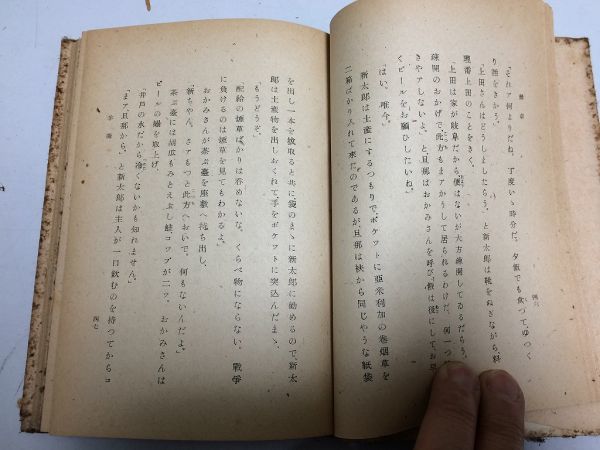 「それァ何よりだね。丁度いゝ時分だ。夕飯でも食つて、ゆつく
り話をきかう。」
「上田さんはどうしましたらう。」と新太郎は靴をぬぎながら、料
理番上田のことをきく。
「上田は家が岐阜だから便はないが大方疎開してゐるだらう。
疎開のおかげで、此方もまアかうして居られるわけだ。何一つ
きやアしないよ。」と、旦那はおかみさんを呼び「飯は後にしてお早
くビールをお願ひしたいね。」
「はい。唯今。」
新太郎は土産にするつもりで、ポケツトに亜米利加の巻烟草を
二箱ばかり入れて来たのであるが、旦那は袂から同じやうな紙袋
四六
を出し一本を抜取ると共に、袋のまゝに新太郎に勧めるので、新太
郎は土産物を出しおくれて、手をポケツトに突込んだまゝ、
「もうどうぞ。」
「配給の煙草ばかりは呑めないな。くらべ物にならない。戦争
に負けるのは煙草を見てもわかるよ。」
おかみさんが茶ぶ台を座敷へ持ち出し、
「新ちやん。さアもつと此方へおいで。何もないんだよ。」
茶ぶ台には胡瓜もみとえぶし鮭、コツプが二ツ。おかみさんは
ビールの罎を取上げ、
「井戸の水だから冷くないかも知れません。」
「まア、旦那から。」と新太郎は主人が一口飲むのを待つてからコ
四七